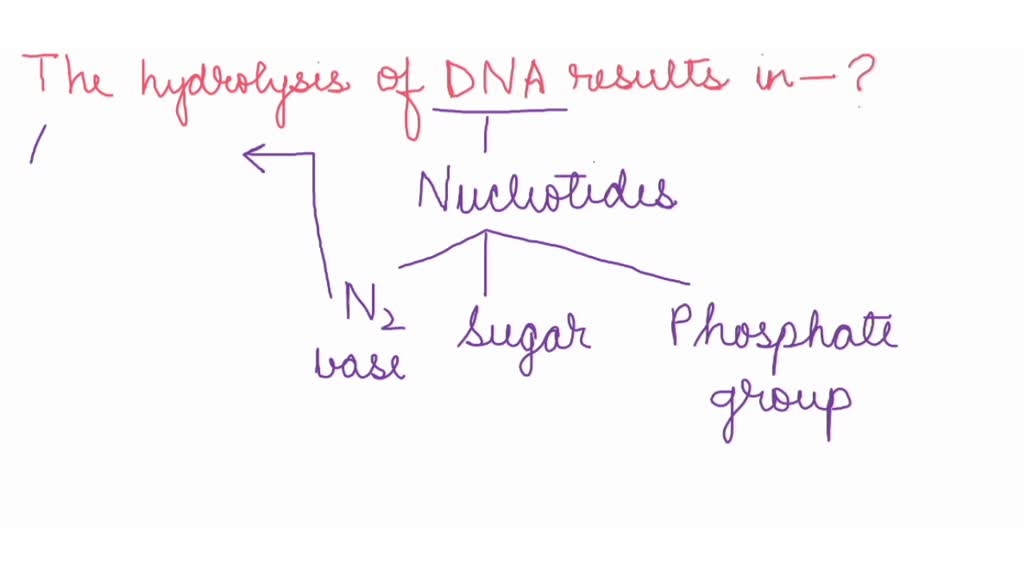 The hydrolysis of DNA results in - ?
Nucleotides
N2 Sugar Phosphate
base group